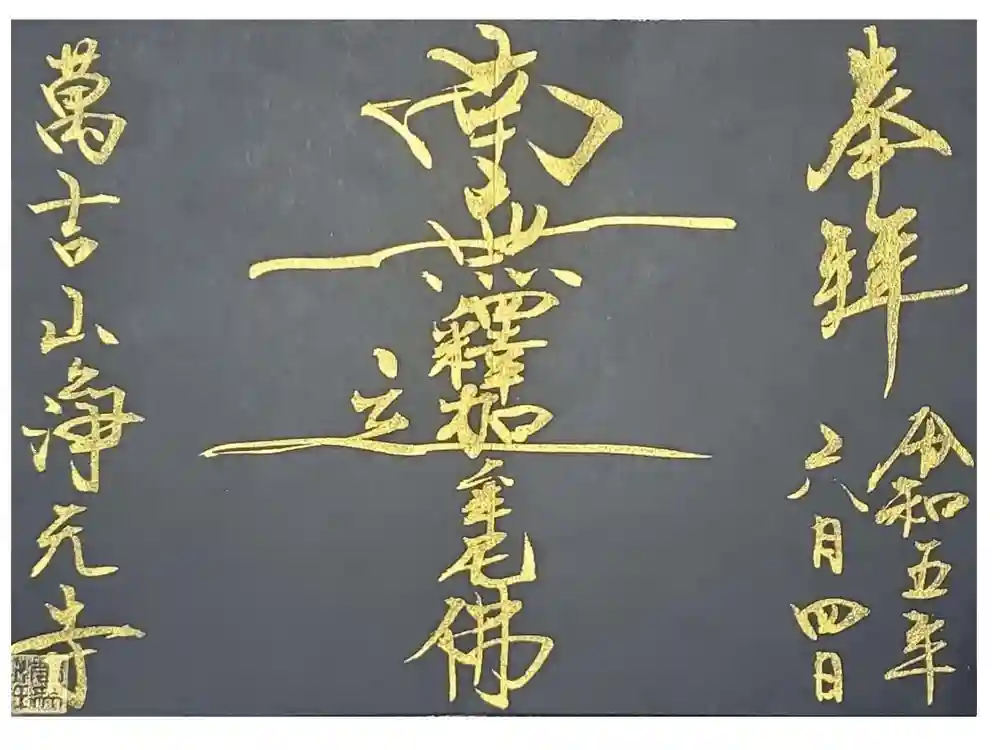 奉拝
令和五年
六月四日
南無釋迦牟尼佛
萬吉山淨元寺